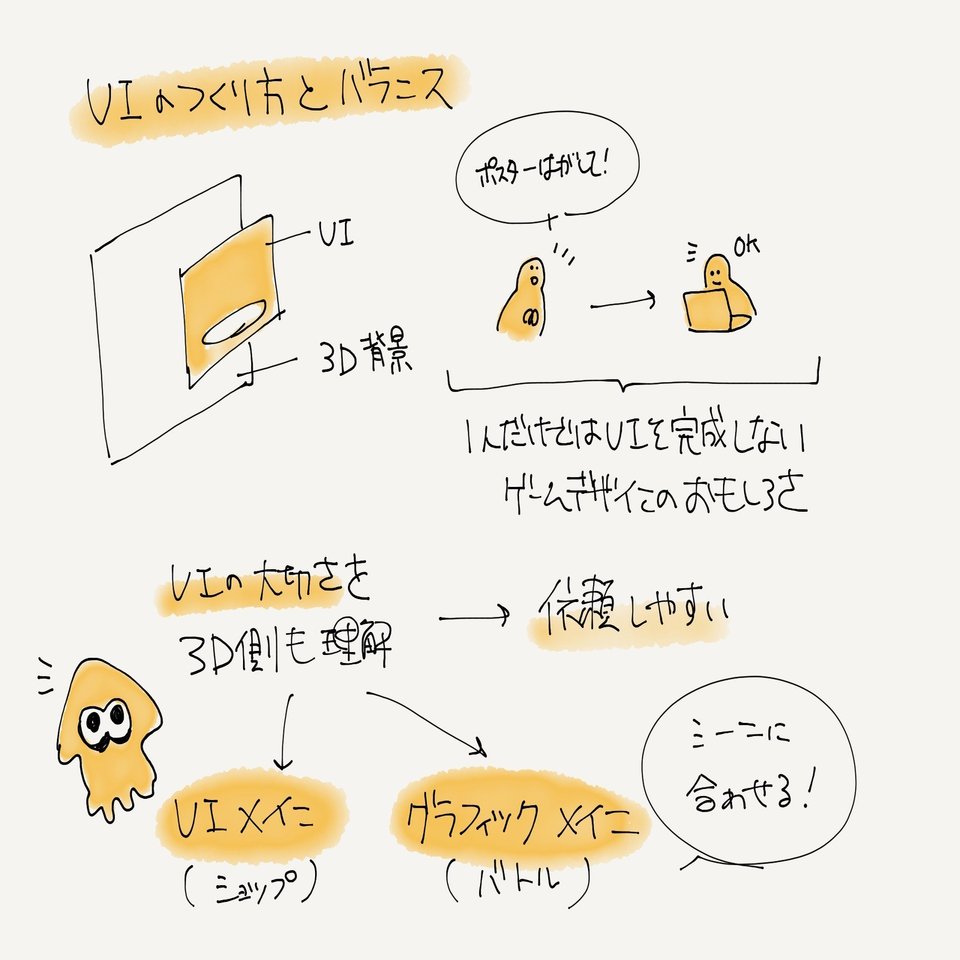 UIのつくり方とバランス
ポスターはがして!
UI
OK
3D背景
1人だけではUIを完成しない
ゲームデザインのおもしろさ
UIの大切さを
3D側も理解
依頼しやすい
シーンに
合わせる!
UIメイン
グラフィックメイン
(ショップ)
(バトル)